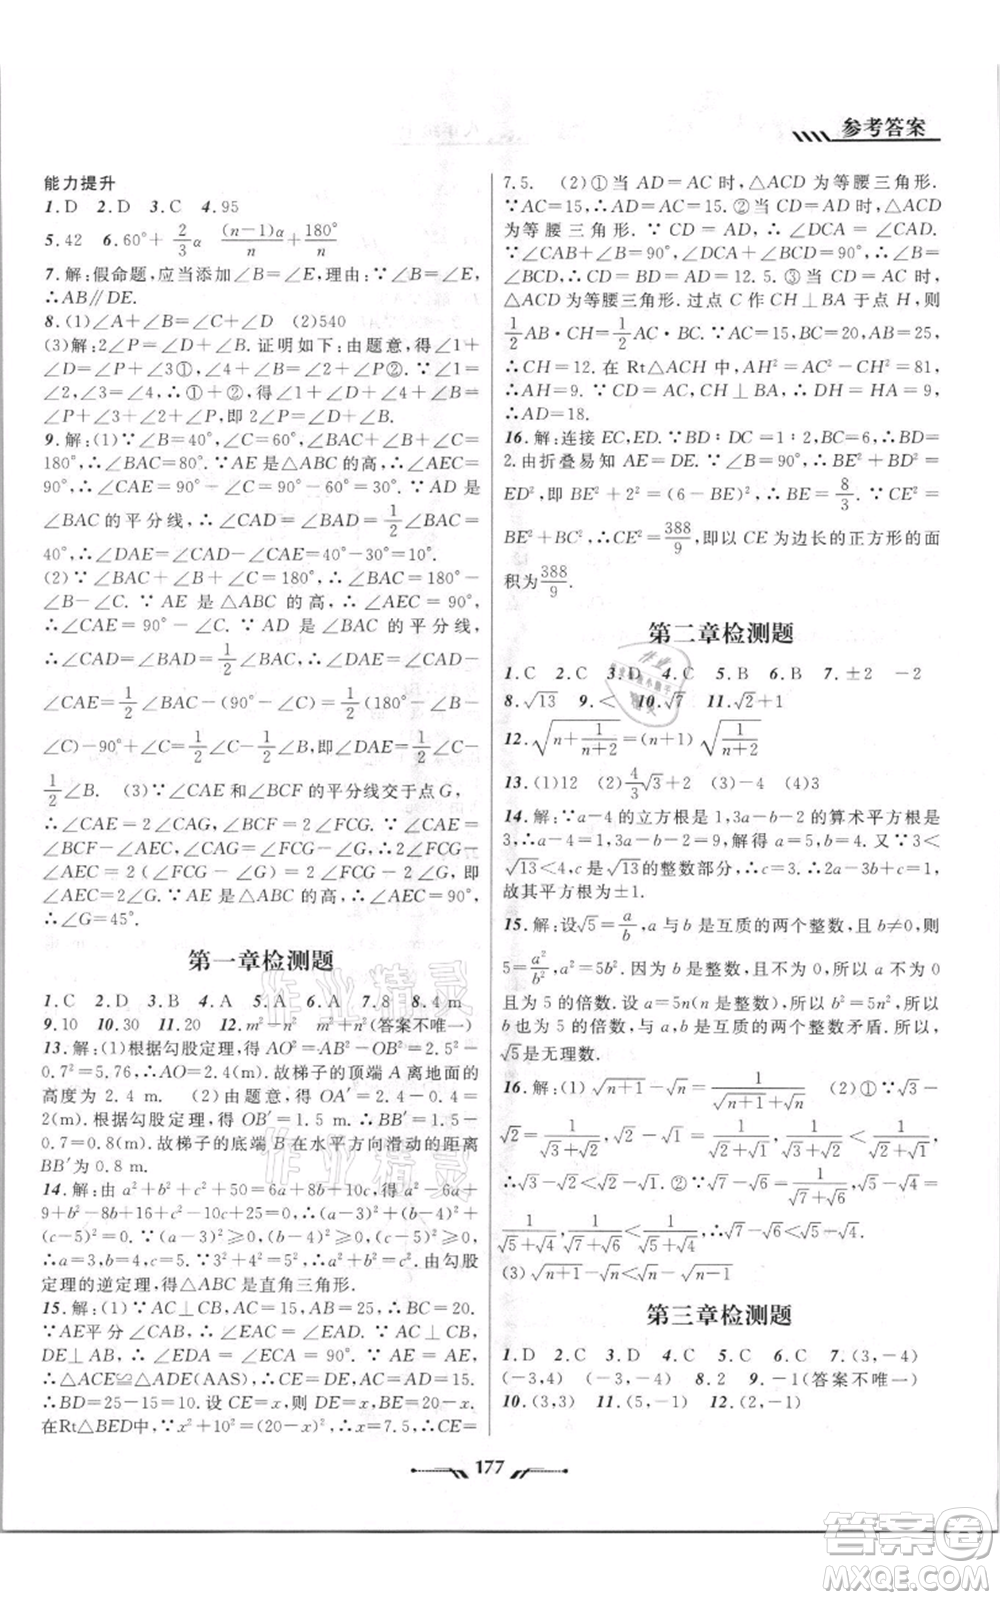 参考答案
能力提升
1. D  2. D  3. C  4. 95
5. 42  6. 60°+ 2/3 α  ((n-1)α+180°)/n
7. 解:假命题,应当添加∠B=∠E,理由:∵∠B=∠E,
∴AB∥DE.
8. (1)∠A+∠B=∠C+∠D  (2)540
(3)解:2∠P=∠D+∠B.证明如下:由题意,得∠1+
∠D=∠P+∠3①,∠4+∠B=∠2+∠P②.∵∠1=
∠2,∠3=∠4,∴①+②,得∠1+∠D+∠4+∠B=
∠P+∠3+∠2+∠P,即 2∠P=∠D+∠B.
9. 解:(1)∵∠B=40°,∠C=60°,∠BAC+∠B+∠C=
180°,∴∠BAC=80°.∵AE是△ABC的高,∴∠AEC=
90°,∴∠CAE=90°-∠C=90°-60°=30°.∵AD 是
∠BAC的平分线,∴∠CAD=∠BAD=1/2∠BAC=
40°,∴∠DAE=∠CAD-∠CAE=40°-30°=10°.
(2)∵∠BAC+∠B+∠C=180°,∴∠BAC=180°-
∠B-∠C.∵AE 是△ABC的高,∴∠AEC=90°,
∴∠CAE=90°-∠C.∵AD是∠BAC的平分线,
∴∠CAD=∠BAD=1/2∠BAC,∴∠DAE=∠CAD-
∠CAE=1/2∠BAC-(90°-∠C)=1/2(180°-∠B-
∠C)-90°+∠C=1/2∠C-1/2∠B,即∠DAE=1/2∠C-
1/2∠B.  (3)∵∠CAE和∠BCF的平分线交于点G,
∴∠CAE=2∠CAG,∠FCB=2∠FCG.∵∠CAE=
∠FCB-∠AEC,∠CAG=∠FCG-∠G,∴∠FCB-
∠AEC=2(∠FCG-∠G)=2∠FCG-2∠G,即
∠AEC=2∠G.∵AE是△ABC的高,∴∠AEC=90°,
∴∠G=45°.
第一章检测题
1. C  2. D  3. B  4. A  5. A  6. A  7. 8  8. 4 m
9. 10  10. 30  11. 20  12. m²-n²  m²+n²(答案不唯一)
13. 解:(1)根据勾股定理,得 AO²=AB²-OB²=2.5²-
0.7²=5.76,∴AO=2.4(m).故梯子的顶端 A 离地面的
高度为 2.4 m.  (2)由题意,得 OA′=2.4-0.4=
2(m).根据勾股定理,得 OB′=1.5 m,∴BB′=1.5-
0.7=0.8(m).故梯子的底端 B 在水平方向滑动的距离
BB′为 0.8 m.
14. 解:由 a²+b²+c²+50=6a+8b+10c,得 a²-6a+
9+b²-8b+16+c²-10c+25=0,∴(a-3)²+(b-4)²+
(c-5)²=0.∵(a-3)²≥0,(b-4)²≥0,(c-5)²≥0,
∴a=3,b=4,c=5.∵3²+4²=5²,∴a²+b²=c².由勾股
定理的逆定理,得△ABC是直角三角形.
15. 解:(1)∵AC⊥CB,AC=15,AB=25,∴BC=20.
∵AE平分∠CAB,∴∠EAC=∠EAD.∵AC⊥CB,
DE⊥AB,∴∠EDA=∠ECA=90°.∵AE=AE,
∴△ACE≌△ADE(AAS),∴CE=DE,AC=AD=15,
∴BD=25-15=10.设CE=x,则DE=x,BE=20-x.
在Rt△BED中,∵x²+10²=(20-x)²,∴x=7.5,∴CE=
7.5.  (2)①当 AD=AC时,△ACD 为等腰三角形.
∵AC=15,∴AD=AC=15.②当 CD=AD时,△ACD
为等腰三角形.∵CD=AD,∴∠DCA=∠CAD.
∵∠CAB+∠B=90°,∠DCA+∠BCD=90°,∴∠B=
∠BCD,∴BD=CD=AD=12.5.③当 CD=AC 时,
△ACD为等腰三角形.过点 C 作 CH⊥BA于点 H,则
1/2AB·CH=1/2AC·BC.∵AC=15,BC=20,AB=25,
∴CH=12.在 Rt△ACH 中,AH²=AC²-CH²=81,
∴AH=9.∵CD=AC,CH⊥BA,∴DH=HA=9,
∴AD=18.
16. 解:连接 EC,ED.∵BD∶DC=1∶2,BC=6,∴BD=
2.由折叠易知 AE=DE.∵∠B=90°,∴BE²+BD²=
ED²,即 BE²+2²=(6-BE)²,∴BE=8/3.∵CE²=
BE²+BC²,∴CE²=388/9,即以CE为边长的正方形的面
积为388/9.
第二章检测题
1. C  2. C  3. D  4. C  5. B  6. B  7. ±2  -2
8. √13  9. <  10. √7  11. √2+1
12. √(n+1/(n+2))=(n+1)√(1/(n+2))
13. (1)12  (2)4/3√3+2  (3)-4  (4)3
14. 解:∵a-4的立方根是1,3a-b-2的算术平方根是
3,∴a-4=1,3a-b-2=9,解得a=5,b=4.又∵3<
√13<4,c是√13的整数部分,∴c=3.∴2a-3b+c=1,
故其平方根为±1.
15. 解:设√5=a/b,a 与 b 是互质的两个整数,且 b≠0,则
5=a²/b²,a²=5b².因为 b 是整数,且不为 0,所以 a 是整数
且为 5 的倍数.设 a=5n(n是整数),所以 b²=5n²,所以
b 也为 5 的倍数,与 a,b 是互质的两个整数矛盾.所以
√5是无理数.
16. 解:(1)√(n+1)-√n=1/(√(n+1)+√n)  (2)①∵√3-
√2=1/(√3+√2),√5-√4=1/(√5+√4),1/(√3+√2)>
1/(√5+√4),∴√3-√2>√5-√4.②∵√7-√6=1/(√7+√6),
√5-√4=1/(√5+√4),1/(√7+√6)<1/(√5+√4),∴√7-√6<√5-√4.
(3)√(n+1)-√n<√n-√(n-1)
第三章检测题
1. D  2. C  3. B  4. D  5. C  6. A  7. (3,-4)
(-3,4)  (-3,-4)  8. 2  9. -1(答案不唯一)
10. (3,3)  11. (5,-1)  12. (2,-1)
177
作业精灵
作业精灵
答案圈
MXQE.COM